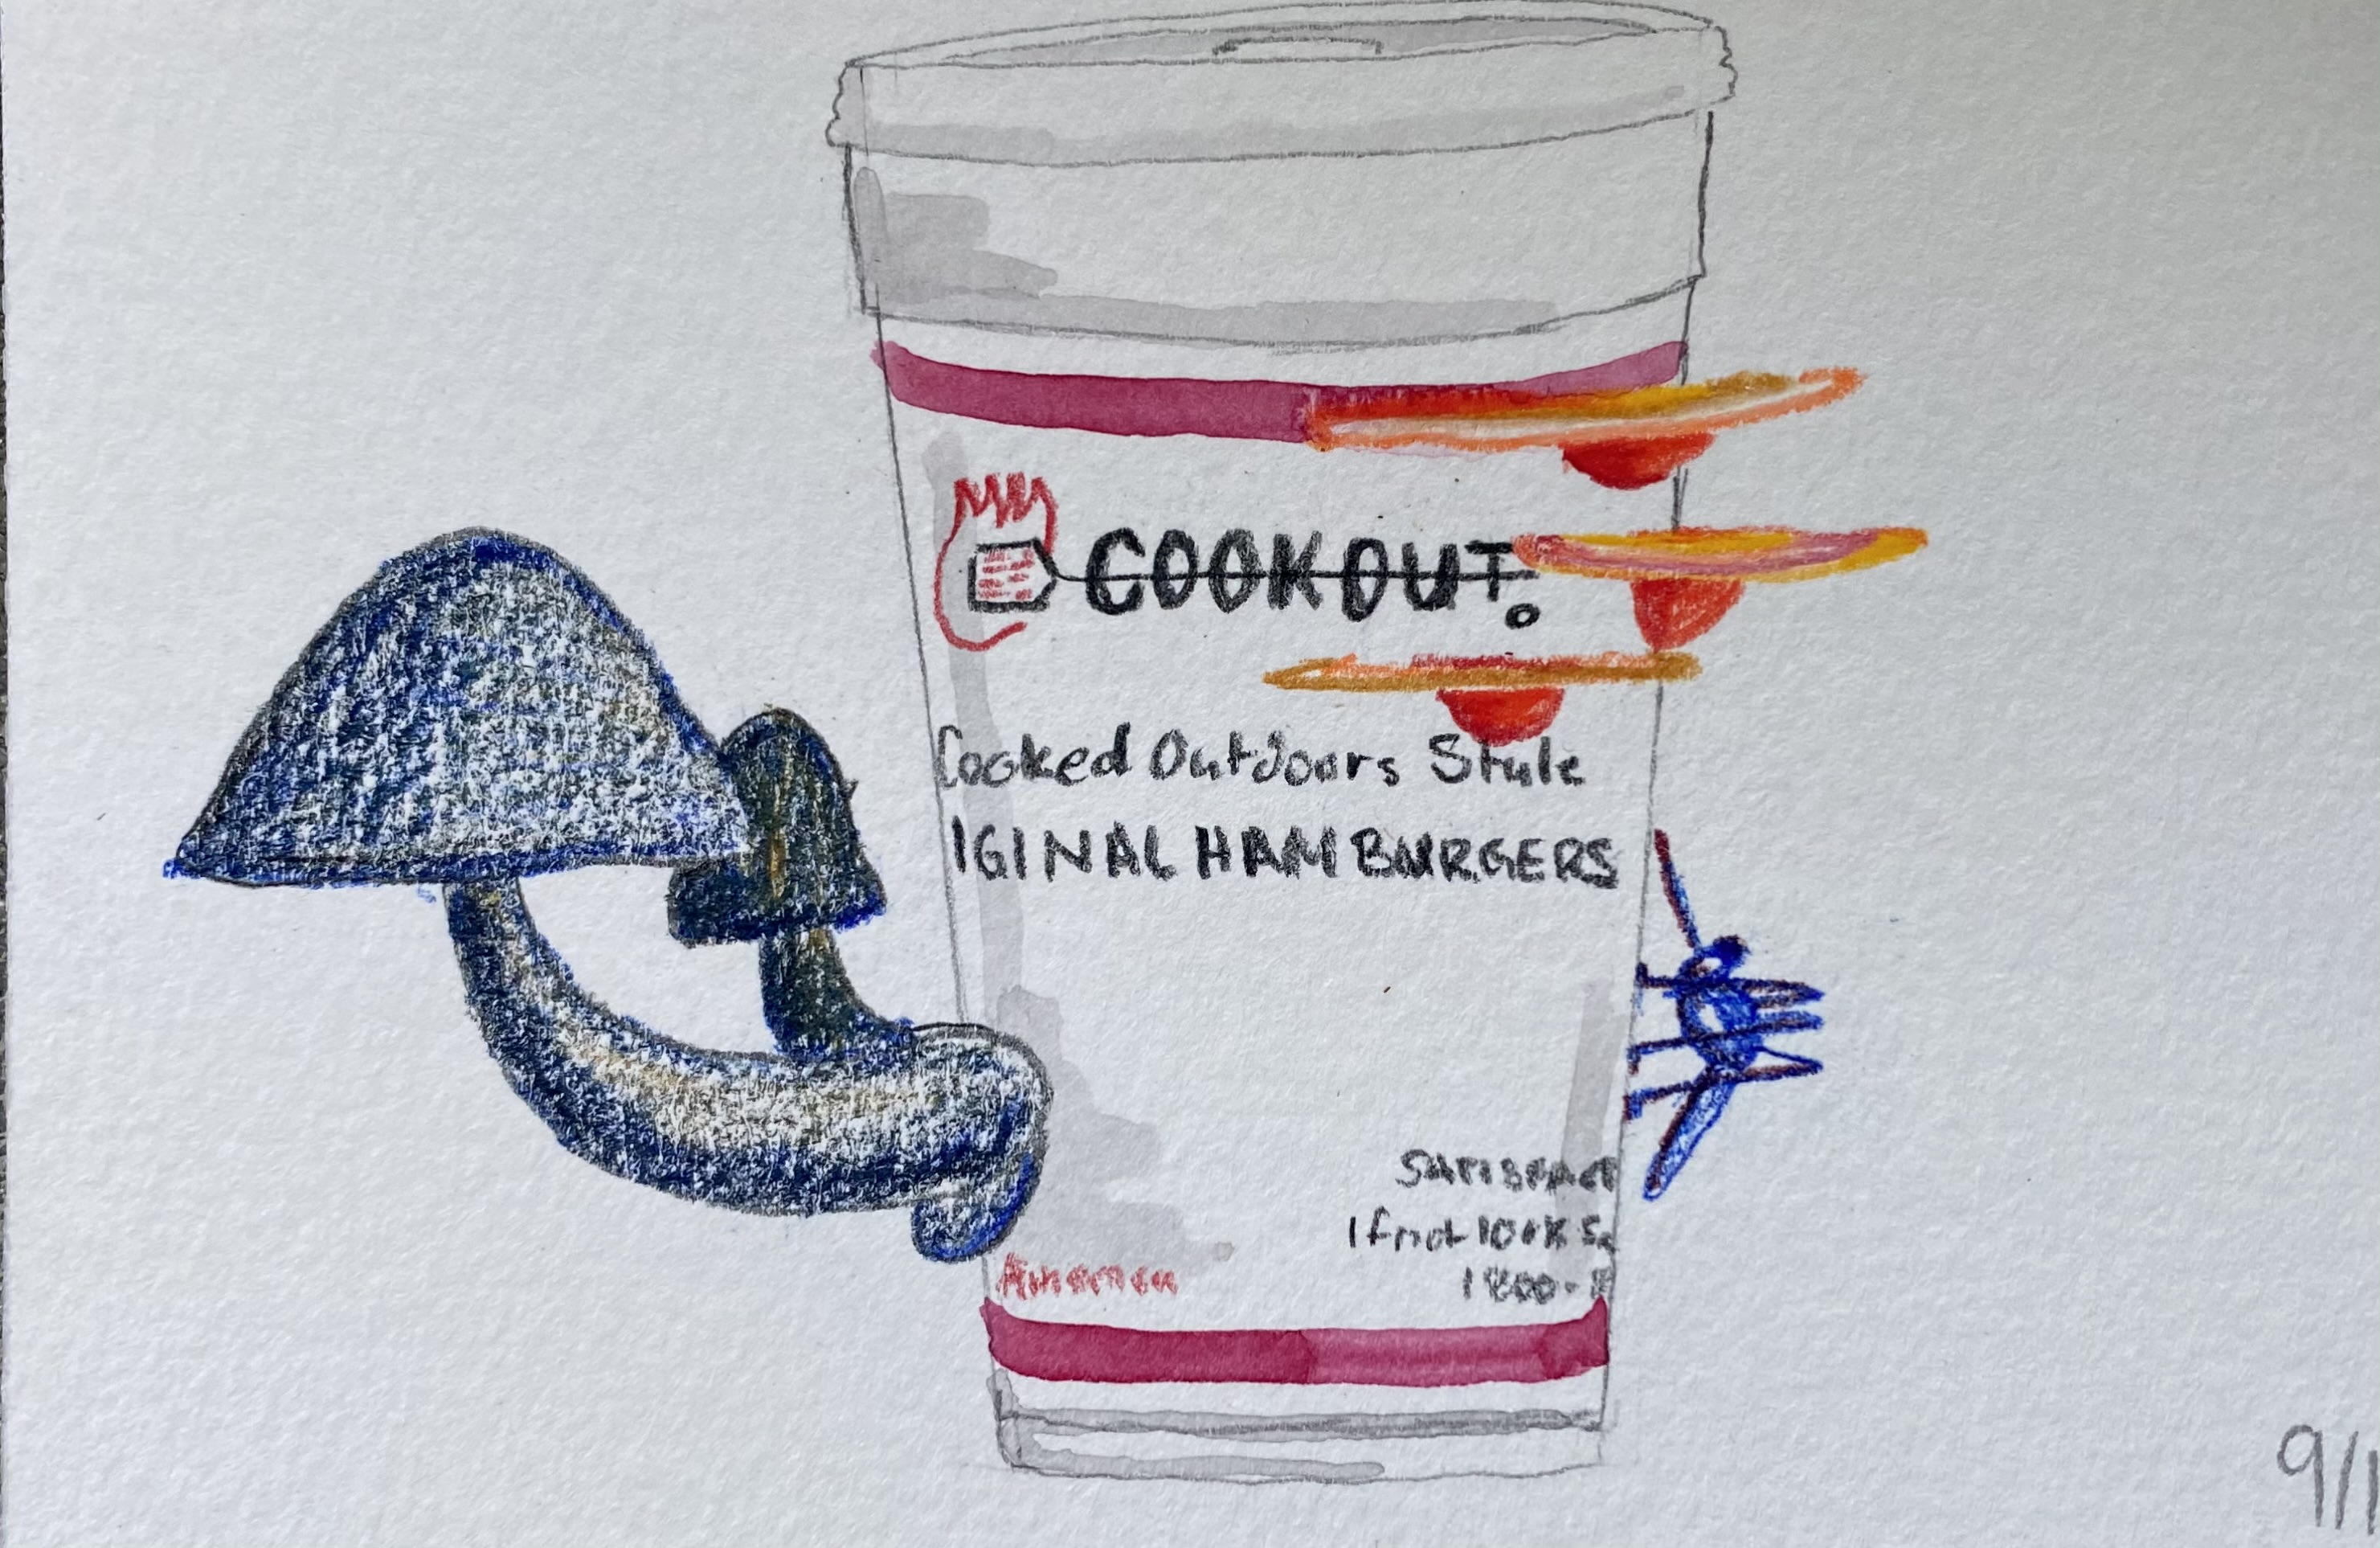 COOKOUT.
Cooked Outdoors Style
IGINAL HAMBURGERS
If not 100%
1800-
America
9/1